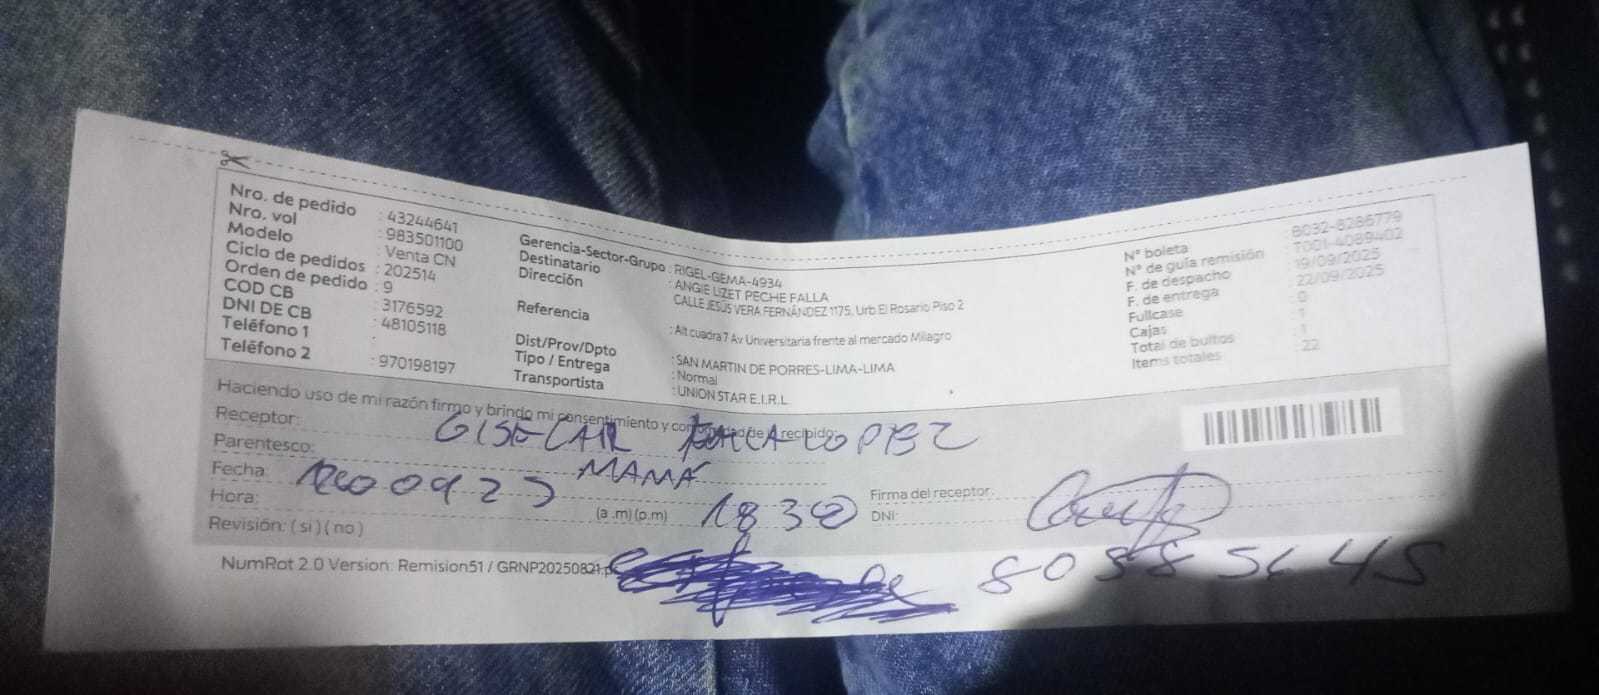 Nro. de pedido : 43244641
Nro. vol : 983501100
Modelo : Venta CN
Ciclo de pedidos : 202514
Orden de pedido : 9
COD CB : 3176592
DNI DE CB : 48105118
Teléfono 1
Teléfono 2 : 970198197
Gerencia-Sector-Grupo : RIGEL-GEMA-4934
Destinatario : ANGIE LIZET PECHE FALLA
Dirección CALLE JESÚS VERA FERNÁNDEZ 1175, Urb El Rosario Piso 2
Referencia : Alt cuadra 7 Av Universitaria frente al mercado Milagro
Dist/Prov/Dpto : SAN MARTIN DE PORRES-LIMA-LIMA
Tipo / Entrega : Normal
Transportista : UNION STAR E.I.R.L
N° boleta : B032-8286779
N° de guía remisión : T001-4089402
F. de despacho : 19/09/2025
F. de entrega : 22/09/2025
Fullcase : 0
Cajas : 1
Total de bultos : 1
Items totales : 22
Haciendo uso de mi razón firmo y brindo mi consentimiento y conformidad de lo recibido:
Receptor: LOPEZ
Parentesco: MAMÁ
Fecha:
Hora: (a .m) (p.m) 1830
Revisión: ( si ) ( no )
Firma del receptor:
DNI:
NumRot 2.0 Version: Remision51 / GRNP20250821.p